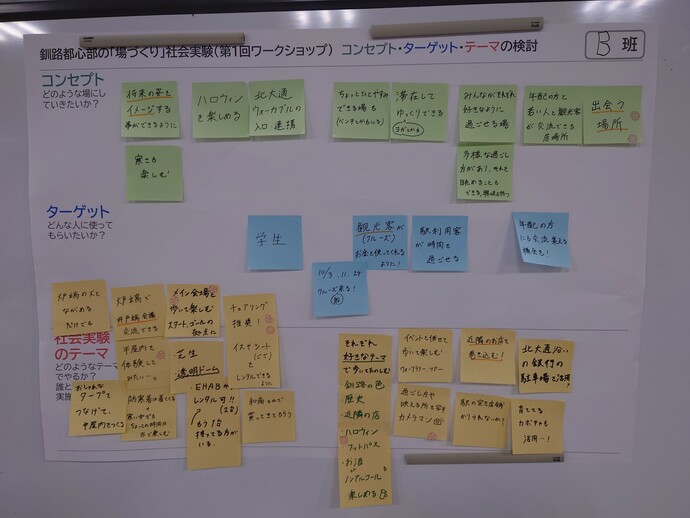 釧路都心部の「場づくり」社会実験(第1回ワークショップ) コンセプト・ターゲット・テーマの検討
B 班
コンセプト
どのような場にし
ていきたいか?
将来の姿を
イメージする
事ができるように
ハロウィン
を楽しめる
北大通
ウォーカブルの
入口・連携
ちょっとひとやすみ
できる場も
(ベンチとかもにも)
滞在して
ゆっくりできる
ヨガとかも
みんながそれぞれ
好きなように
過ごせる場
年配の方と
若い人と観光客
が交流できる
居場所
出会う
場所
寒さも
楽しむ
多様な過ごし
方があり、それを
眺めることも
できる。
ターゲット
どんな人に使って
もらいたいか?
学生
観光客が
(クルーズ)
お金を使ってくれる
ように!
駅利用客
が時間を
過ごせる
年配の方
にも交流
機会を!
10/3、11、24
クルーズ来る!
炉端の火を
ながめる
だけでも
炉端で
井戸端会議
交流できる
メイン会場を
歩いて楽しむ
スタート、ゴールの
拠点に
チェアリング
推奨!
イス、テント
レンタルできる
ように
社会実験
のテーマ
どのようなテーマ
でやるか?
誰と
実施
平屋内を
体験して
みたい…。
芝生
透明ドーム
おしゃれな
タープで
つなげて、
平屋内をつくる
防寒着は着てくる
+
寒い中でも
ちょっとの時間は
外で楽しむ
EHAB
レンタル可!!
もう1台
持ってる方が
いる。
和商とかで
買ってきてもらう
それぞれ
好きなテーマ
で歩いてたのむ
釧路の色
歴史
近隣の店
・ハロウィン
・フットパス
・お酒
ノンアルコール
楽しめる
イベントと併せて
歩いて楽しむ
近隣のお店を
巻き込む!
北大通沿い
の銀行の
駐車場を活用
過ごし方や
映える所を写す
カメラマン
駅の空き店舗
かりられないか?
育ててる
カボチャも
活用…!